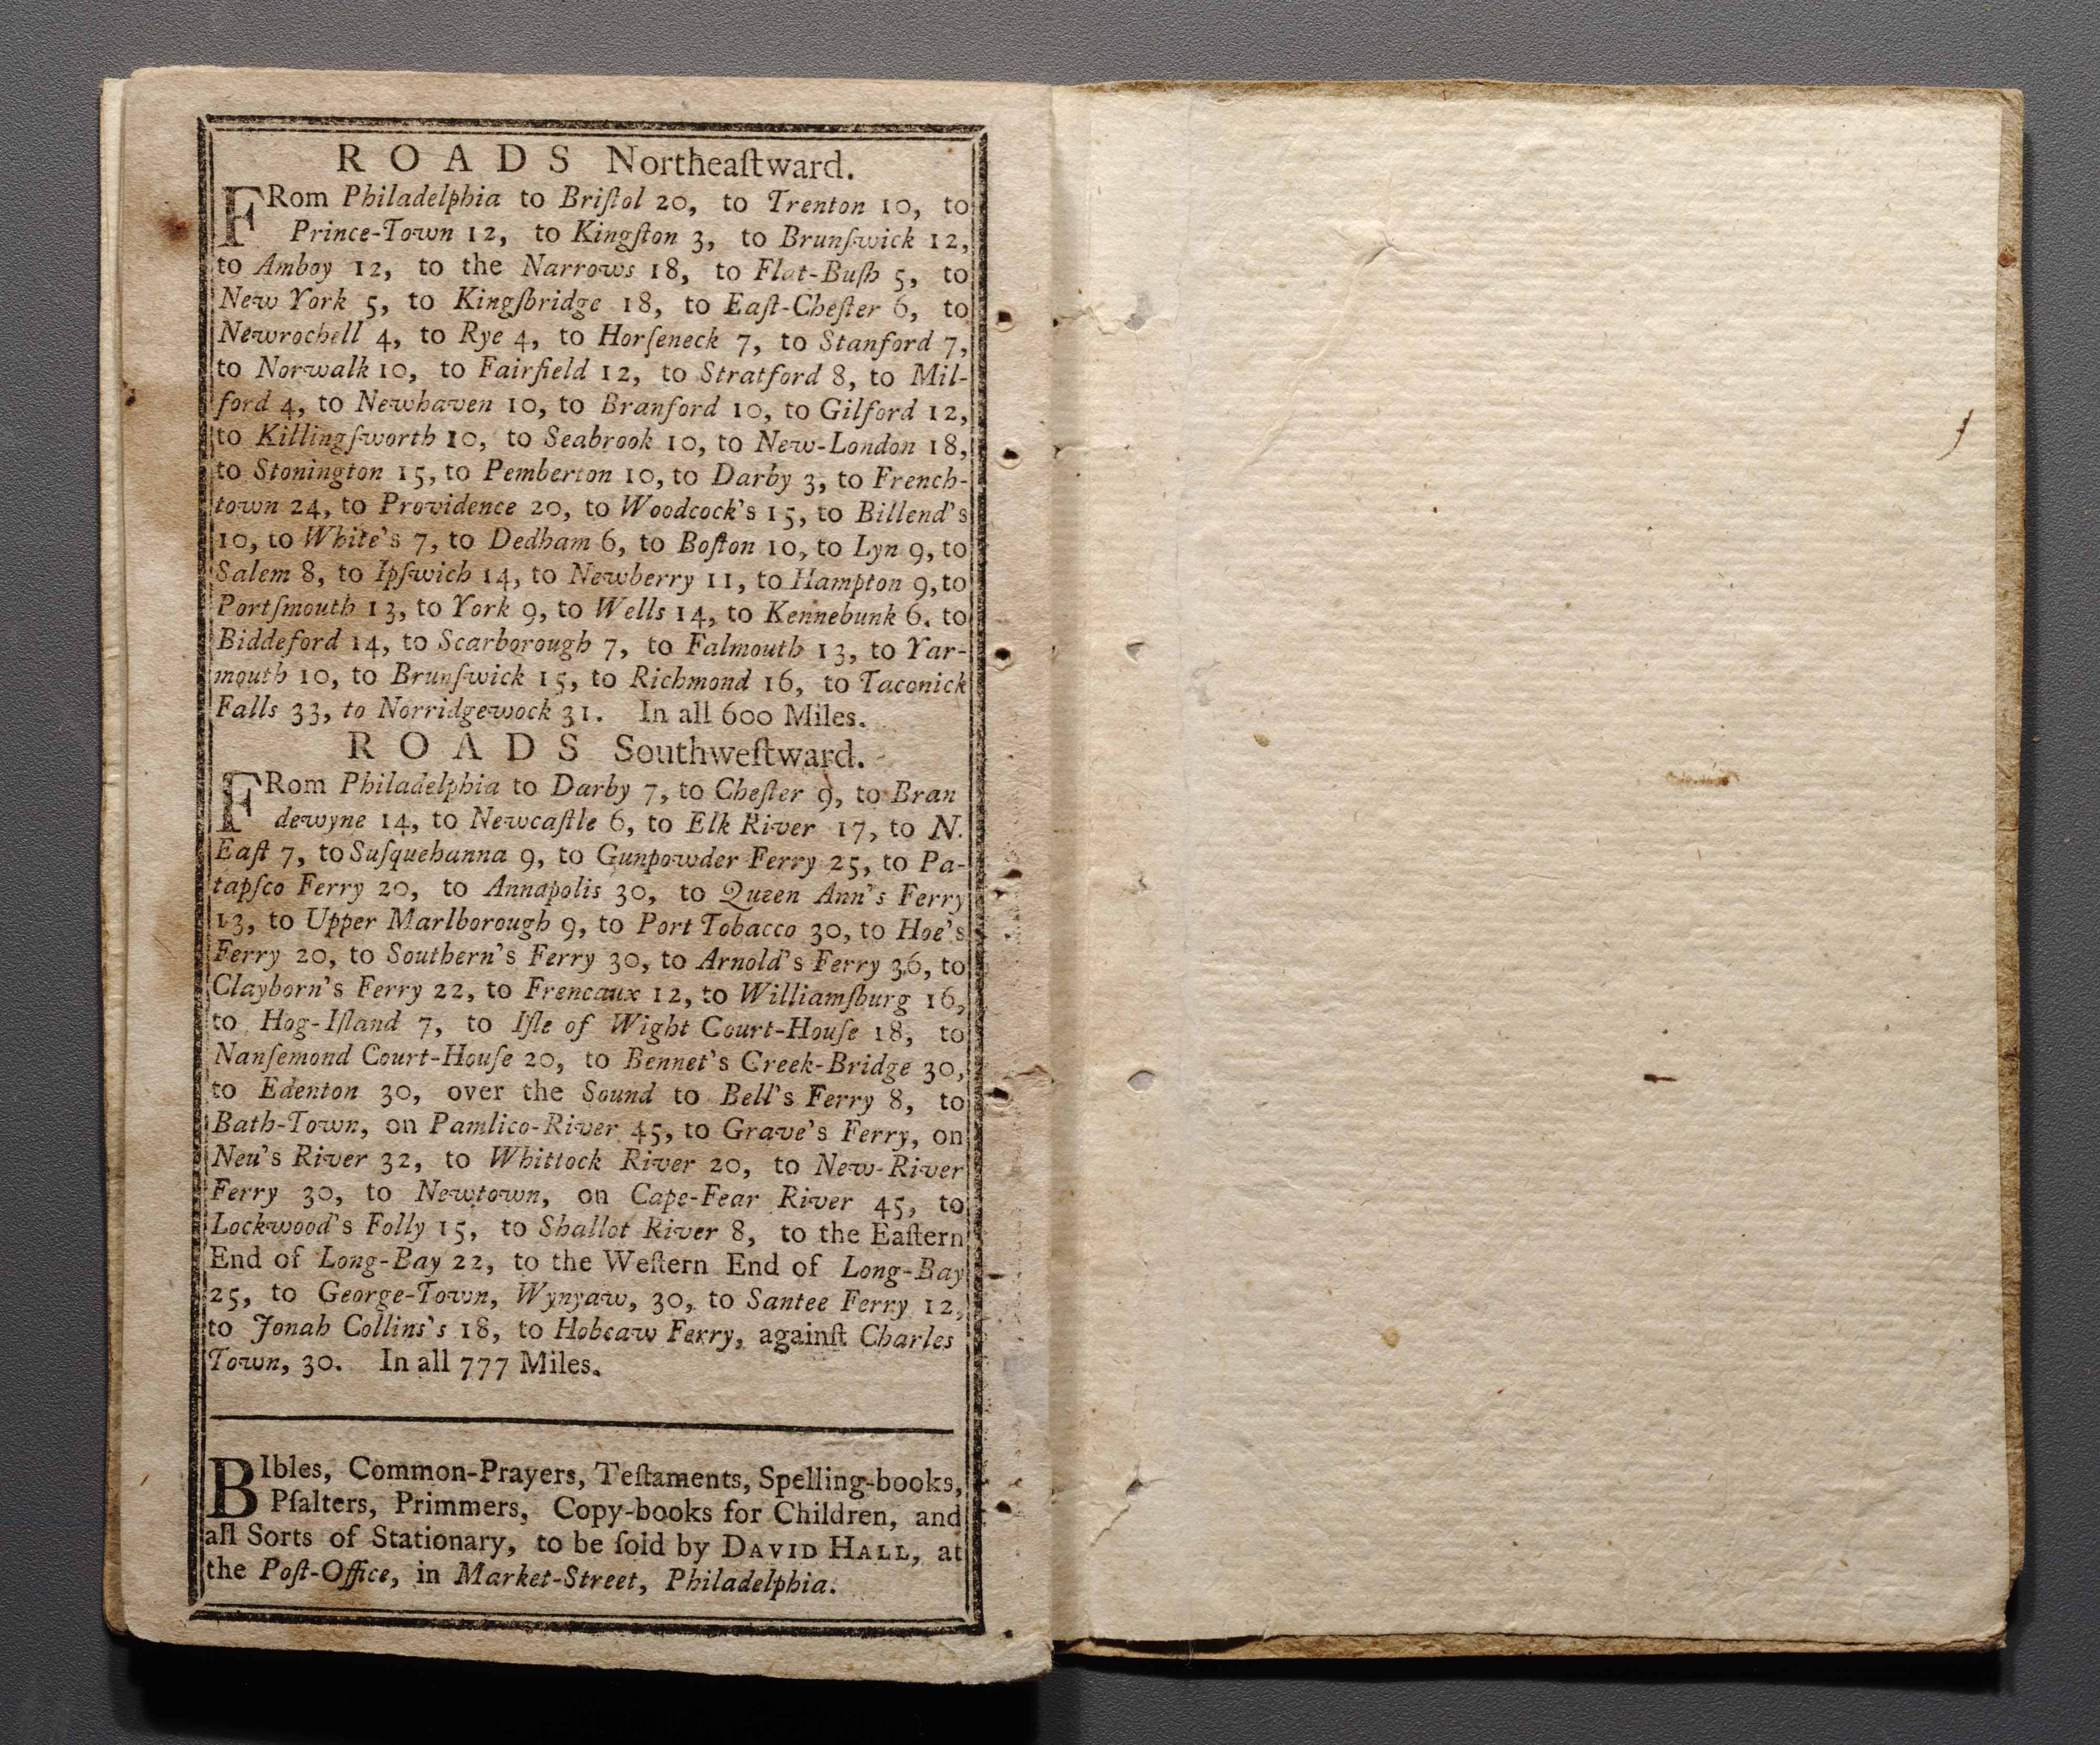 ROADS Northeaſtward.
FRom Philadelphia to Briſtol 20, to Trenton 10, to
Prince-Town 12, to Kingſton 3, to Brunſwick 12,
to Amboy 12, to the Narrows 18, to Flat-Buſh 5, to
New York 5, to Kingſbridge 18, to Eaſt-Cheſter 6, to
Newrochell 4, to Rye 4, to Horſeneck 7, to Stanford 7,
to Norwalk 10, to Fairfield 12, to Stratford 8, to Mil-
ford 4, to Newhaven 10, to Branford 10, to Gilford 12,
to Killingſworth 10, to Seabrook 10, to New-London 18,
to Stonington 15, to Pemberton 10, to Darby 3, to French-
town 24, to Providence 20, to Woodcock's 15, to Billend's
10, to White's 7, to Dedham 6, to Boſton 10, to Lyn 9, to
Salem 8, to Ipſwich 14, to Newberry 11, to Hampton 9, to
Portſmouth 13, to York 9, to Wells 14, to Kennebunk 6. to
Biddeford 14, to Scarborough 7, to Falmouth 13, to Yar-
mouth 10, to Brunſwick 15, to Richmond 16, to Taconick
Falls 33, to Norridgewock 31. In all 600 Miles.
ROADS Southweſtward.
FRom Philadelphia to Darby 7, to Cheſter 9, to Bran
dewyne 14, to Newcaſtle 6, to Elk River 17, to N.
Eaſt 7, to Suſquehanna 9, to Gunpowder Ferry 25, to Pa-
tapſco Ferry 20, to Annapolis 30, to Queen Ann's Ferry
13, to Upper Marlborough 9, to Port Tobacco 30, to Hoe's
Ferry 20, to Southern's Ferry 30, to Arnold's Ferry 36, to
Clayborn's Ferry 22, to Freneaux 12, to Williamſburg 16,
to Hog-Iſland 7, to Iſle of Wight Court-Houſe 18, to
Nanſemond Court-Houſe 20, to Bennet's Creek-Bridge 30,
to Edenton 30, over the Sound to Bell's Ferry 8, to
Bath-Town, on Pamlico-River 45, to Grave's Ferry, on
Neu's River 32, to Whittock River 20, to New-River
Ferry 30, to Newtown, on Cape-Fear River 45, to
Lockwood's Folly 15, to Shallot River 8, to the Eaſtern
End of Long-Bay 22, to the Weſtern End of Long-Bay
25, to George-Town, Wynyaw, 30, to Santee Ferry 12,
to Jonah Collins's 18, to Hobcaw Ferry, againſt Charles
Town, 30. In all 777 Miles.
BIbles, Common-Prayers, Teſtaments, Spelling-books,
Pſalters, Primmers, Copy-books for Children, and
all Sorts of Stationary, to be ſold by DAVID HALL, at
the Poſt-Office, in Market-Street, Philadelphia.